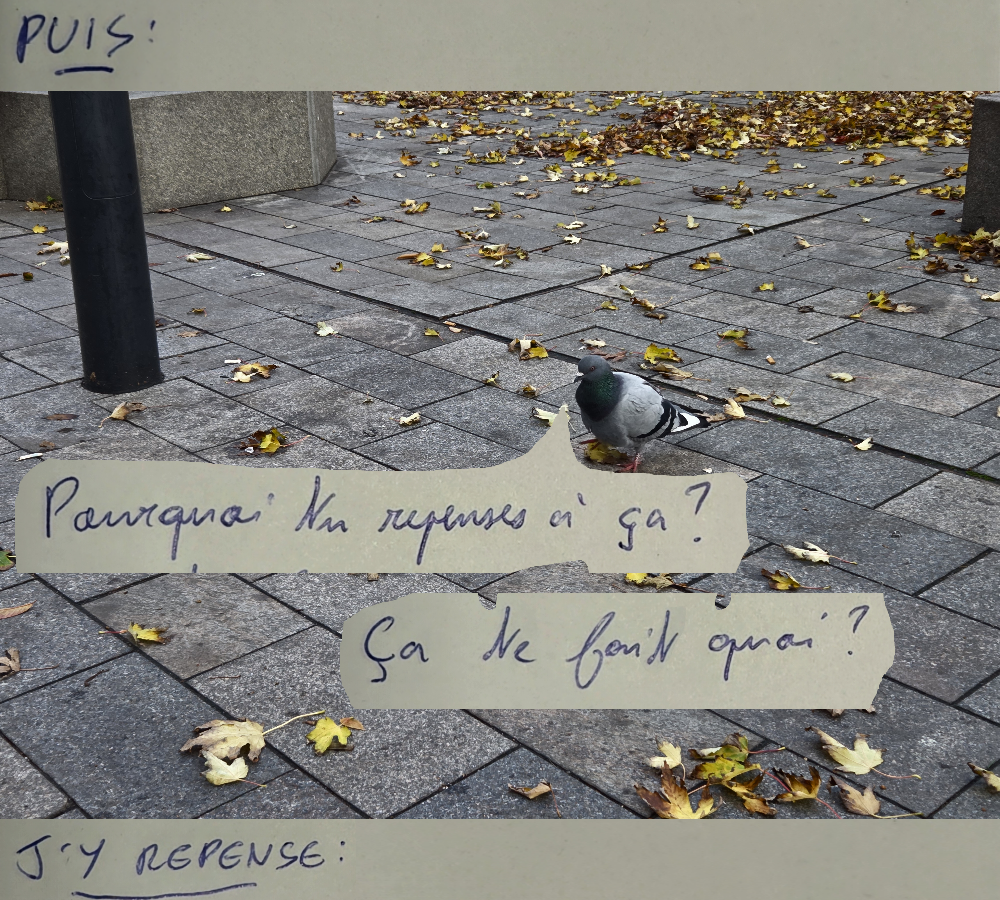 PUIS:
Pourquoi tu repenses à ça?
Ça te fait quoi?
J'Y REPENSE: